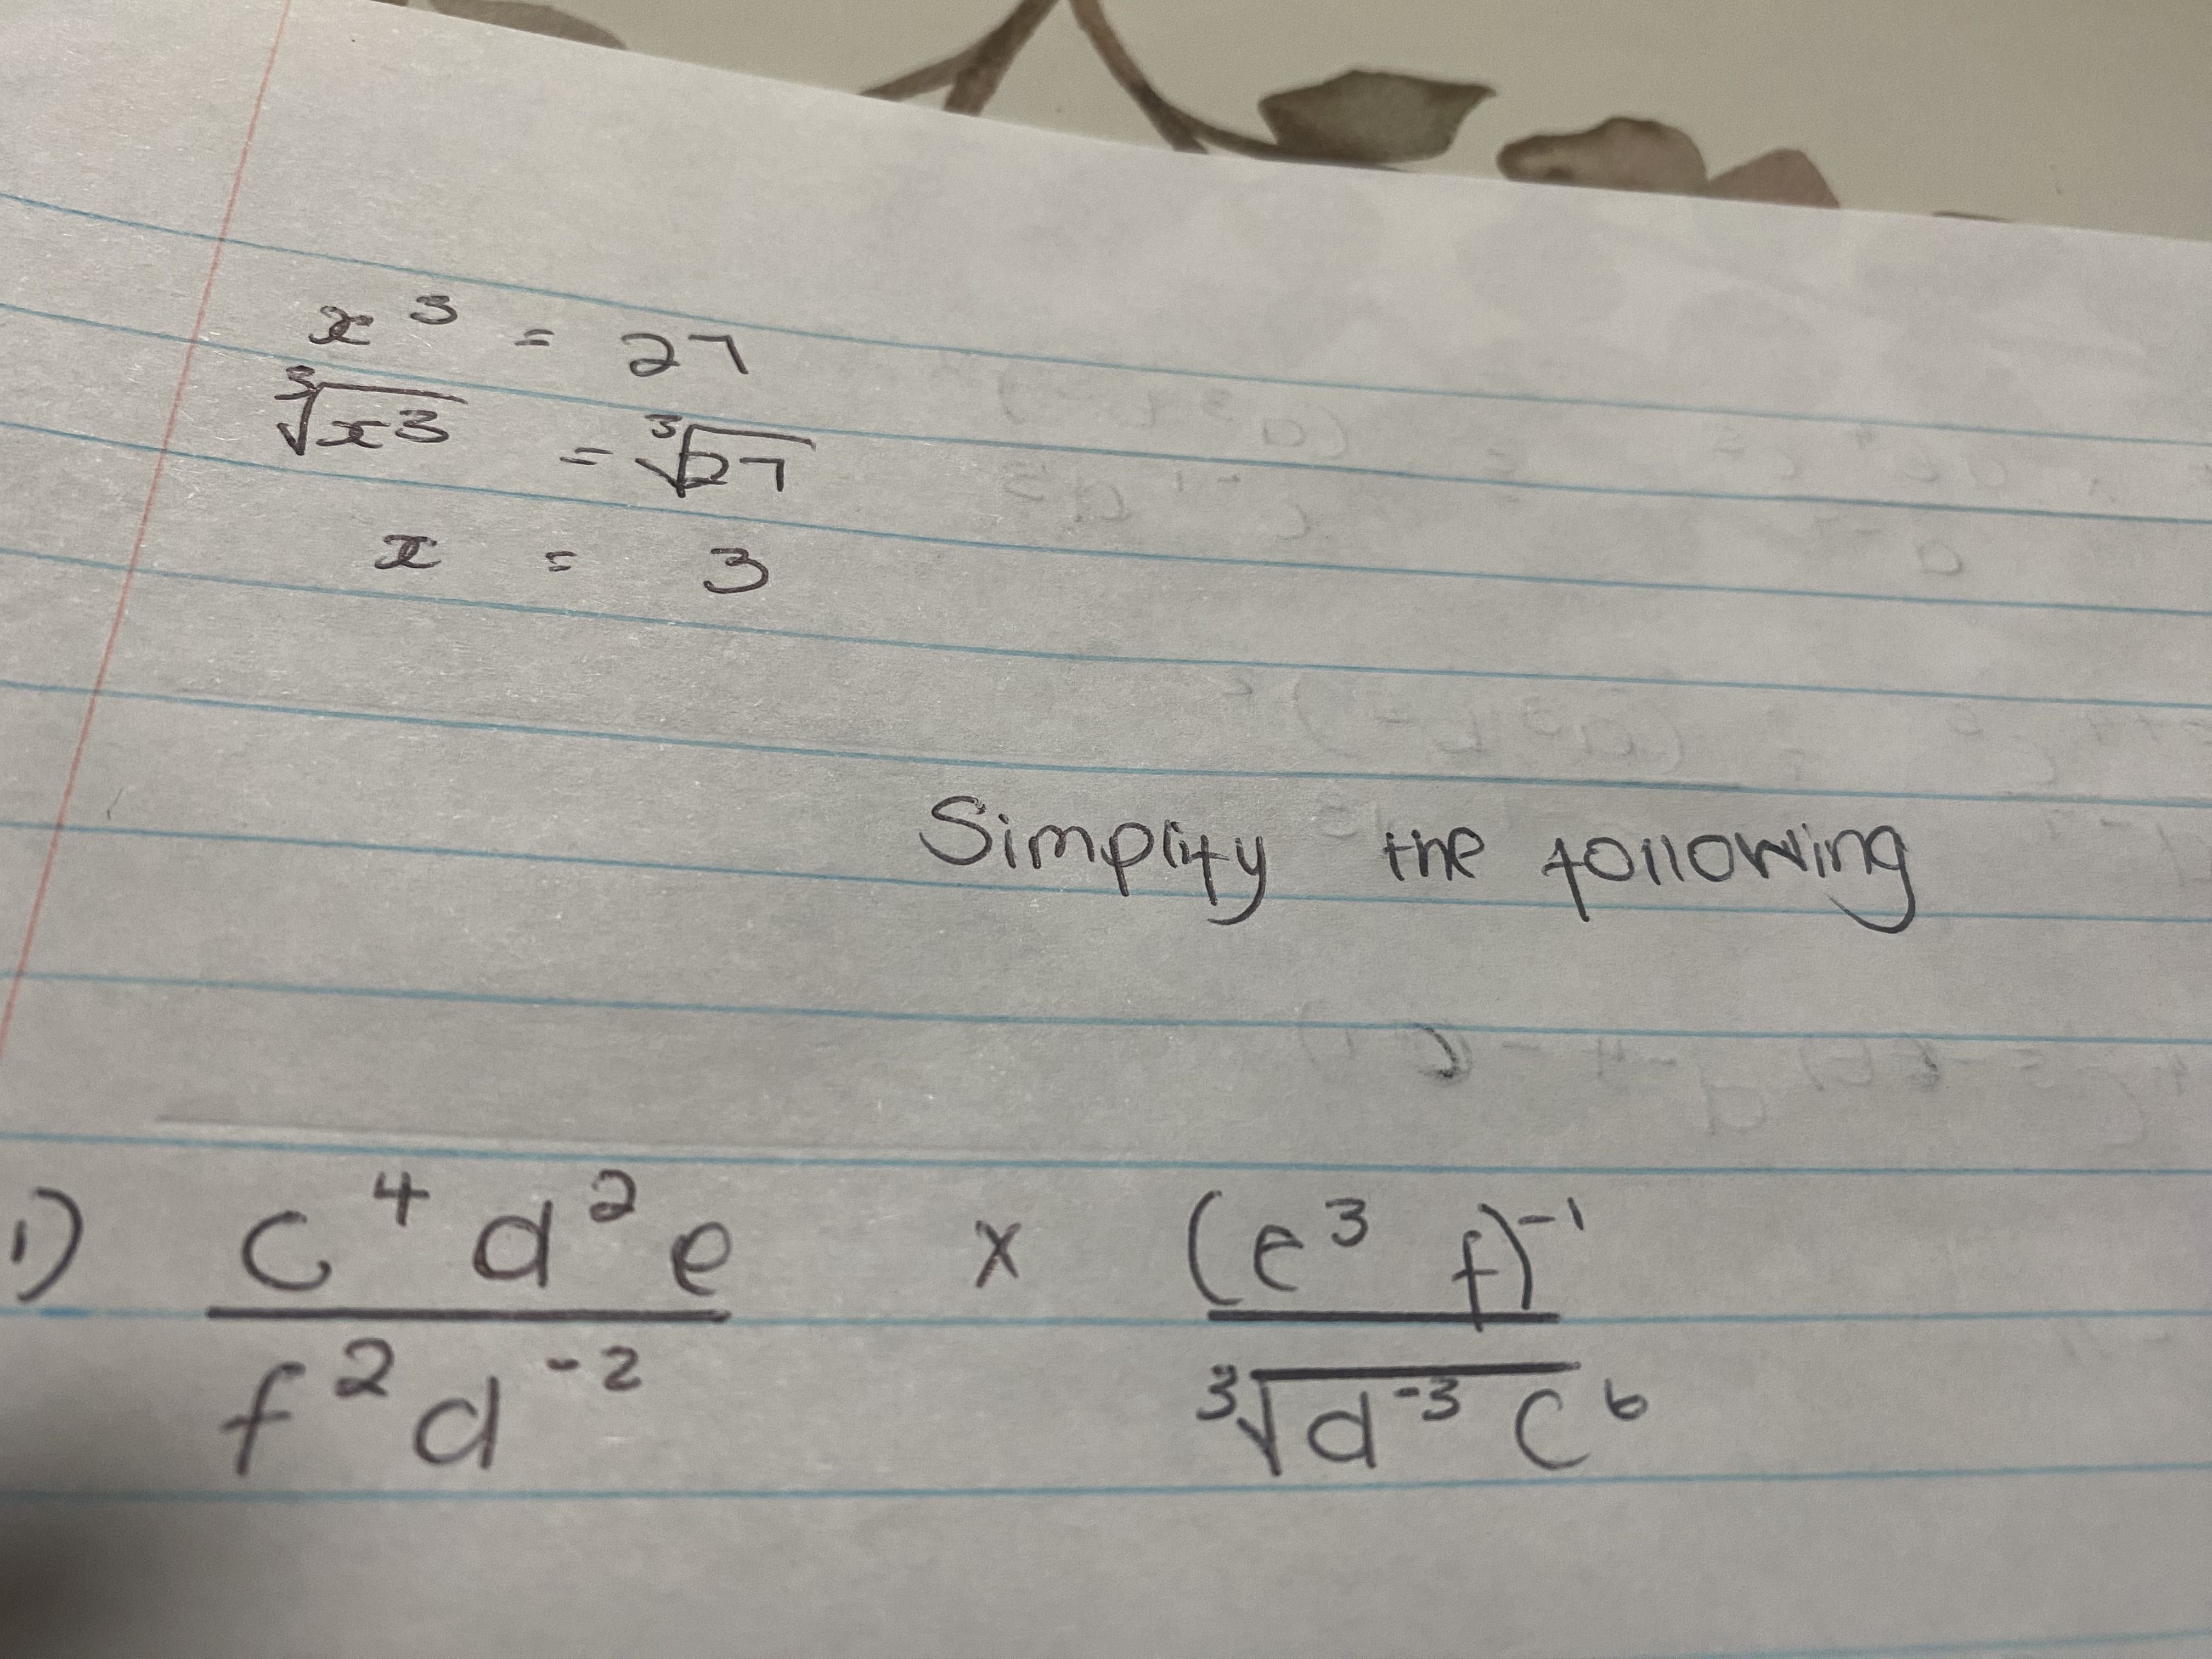 x³ = 27
∛x³ = ∛27
x = 3
Simplify the following
1) (c⁴ d² e)/(f² d⁻²) × (e³ f)⁻¹/∛(d⁻³ c⁶)